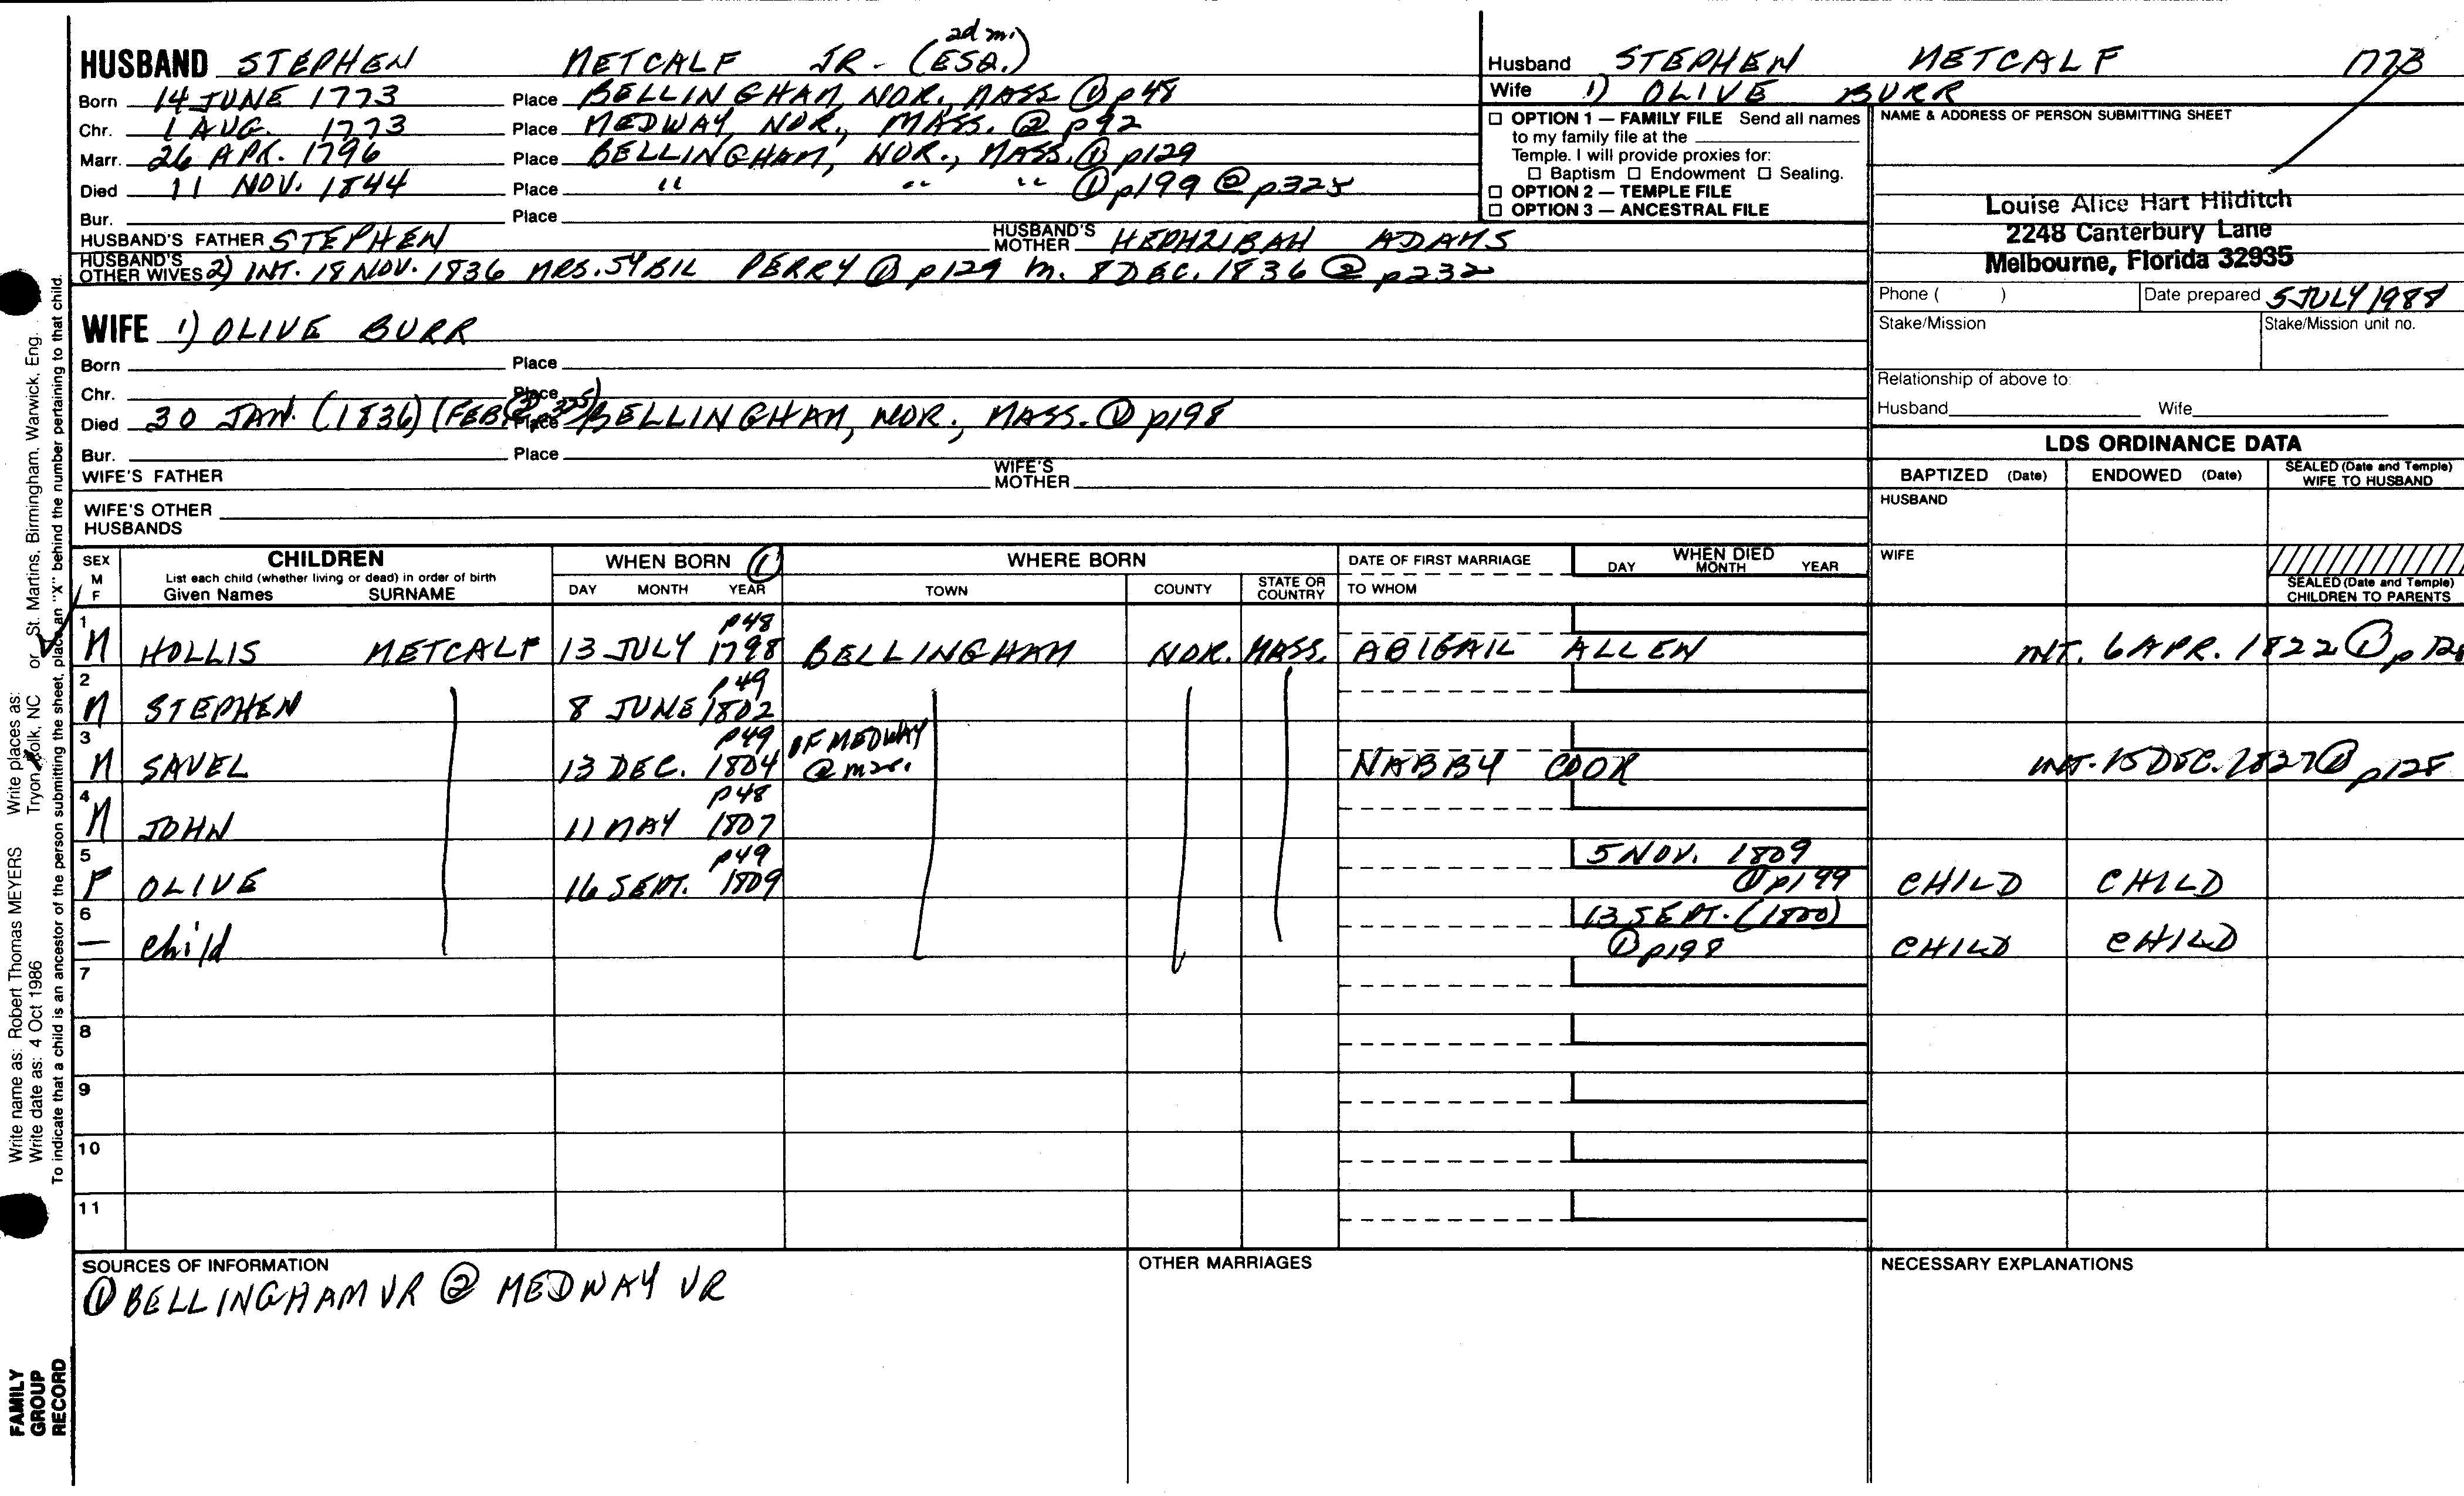 2d m.
HUSBAND STEPHEN METCALF JR. (ESQ.)
Born 14 JUNE 1773 Place BELLINGHAM, NOR., MASS ① p48
Chr. 1 AUG. 1773 Place MEDWAY, NOR., MASS. ② p92
Marr. 26 APR. 1796 Place BELLINGHAM, NOR., MASS. ① p129
Died 11 NOV. 1844 Place " " " ① p199 ② p325
Bur. Place
HUSBAND'S FATHER STEPHEN HUSBAND'S MOTHER HEPHZIBAH ADAMS
HUSBAND'S OTHER WIVES 2) INT. 18 NOV. 1836 MRS. SYBIL PERRY ① p129 m. 8 DEC. 1836 ② p232
WIFE 1) OLIVE BURR
Born Place
Chr. Place
Died 30 JAN. (1836) (FEB. ② p325) Place BELLINGHAM, NOR., MASS. ① p198
Bur. Place
WIFE'S FATHER WIFE'S MOTHER
WIFE'S OTHER HUSBANDS
Husband STEPHEN METCALF 1773
Wife 1) OLIVE BURR
☐ OPTION 1 — FAMILY FILE Send all names
to my family file at the
Temple. I will provide proxies for:
☐ Baptism ☐ Endowment ☐ Sealing.
☐ OPTION 2 — TEMPLE FILE
☐ OPTION 3 — ANCESTRAL FILE
NAME & ADDRESS OF PERSON SUBMITTING SHEET
Louise Alice Hart Hilditch
2248 Canterbury Lane
Melbourne, Florida 32935
Phone ( ) Date prepared 5 JULY 1988
Stake/Mission Stake/Mission unit no.
Relationship of above to:
Husband Wife
LDS ORDINANCE DATA
BAPTIZED (Date) ENDOWED (Date) SEALED (Date and Temple) WIFE TO HUSBAND
HUSBAND
WIFE
SEALED (Date and Temple) CHILDREN TO PARENTS
SEX M F CHILDREN WHEN BORN ① WHERE BORN DATE OF FIRST MARRIAGE WHEN DIED
List each child (whether living or dead) in order of birth
Given Names SURNAME DAY MONTH YEAR TOWN COUNTY STATE OR COUNTRY TO WHOM DAY MONTH YEAR
1 p48
M HOLLIS METCALF 13 JULY 1798 BELLINGHAM NOR. MASS. ABIGAIL ALLEN INT. 6 APR. 1822 ① p128
2 p49
M STEPHEN 8 JUNE 1802
3 p49 OF MEDWAY
M SAVEL 13 DEC. 1804 @ mar. NABBY COOK INT. 15 DEC. 1827 ① p128
4 p48
M JOHN 11 MAY 1807
5 p49 5 NOV. 1809
F OLIVE 16 SEPT. 1809 ① p199 CHILD CHILD
6 13 SEPT. (1800)
— child ① p198 CHILD CHILD
7
8
9
10
11
SOURCES OF INFORMATION OTHER MARRIAGES NECESSARY EXPLANATIONS
① BELLINGHAM VR ② MEDWAY VR
Write name as: Robert Thomas MEYERS Write places as: 
Write date as: 4 Oct 1986 Tryon, Polk, NC or St. Martins, Birmingham, Warwick, Eng.
To indicate that a child is an ancestor of the person submitting the sheet, place an "X" behind the number pertaining to that child.
FAMILY
GROUP
RECORD